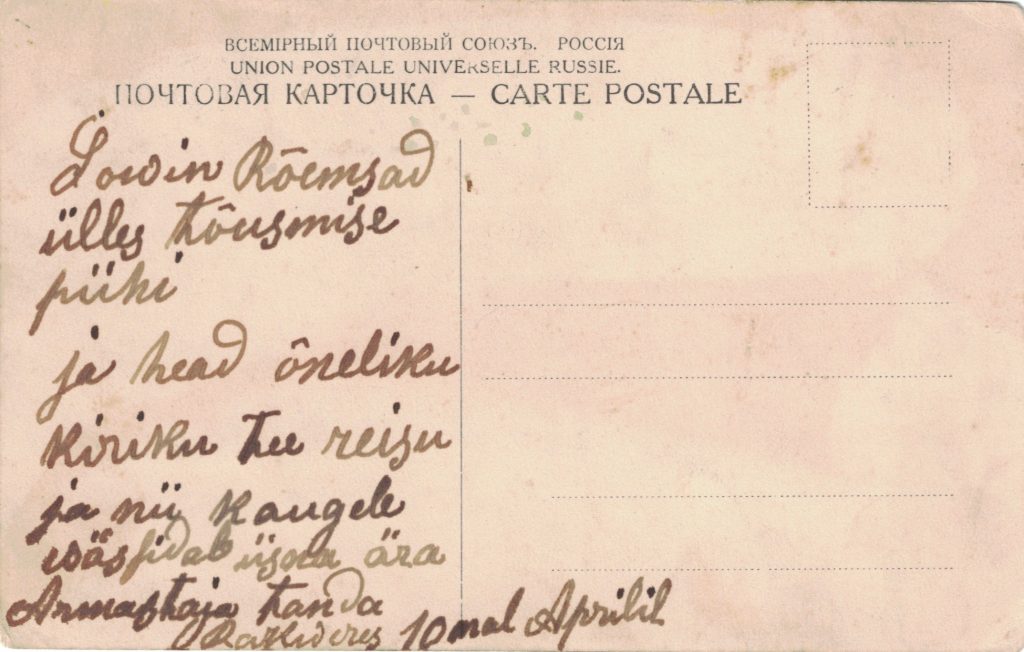 ВСЕМІРНЫЙ ПОЧТОВЫЙ СОЮЗЪ. РОССІЯ
UNION POSTALE UNIVERSELLE RUSSIE.
ПОЧТОВАЯ КАРТОЧКА — CARTE POSTALE
Sowin Rõemsad
ülles tõusmise
pühi
ja head õneliku
kiriku tee reisu
ja nii kaugele
ära
Armastaja tanda
Rakweres 10mal Aprilil